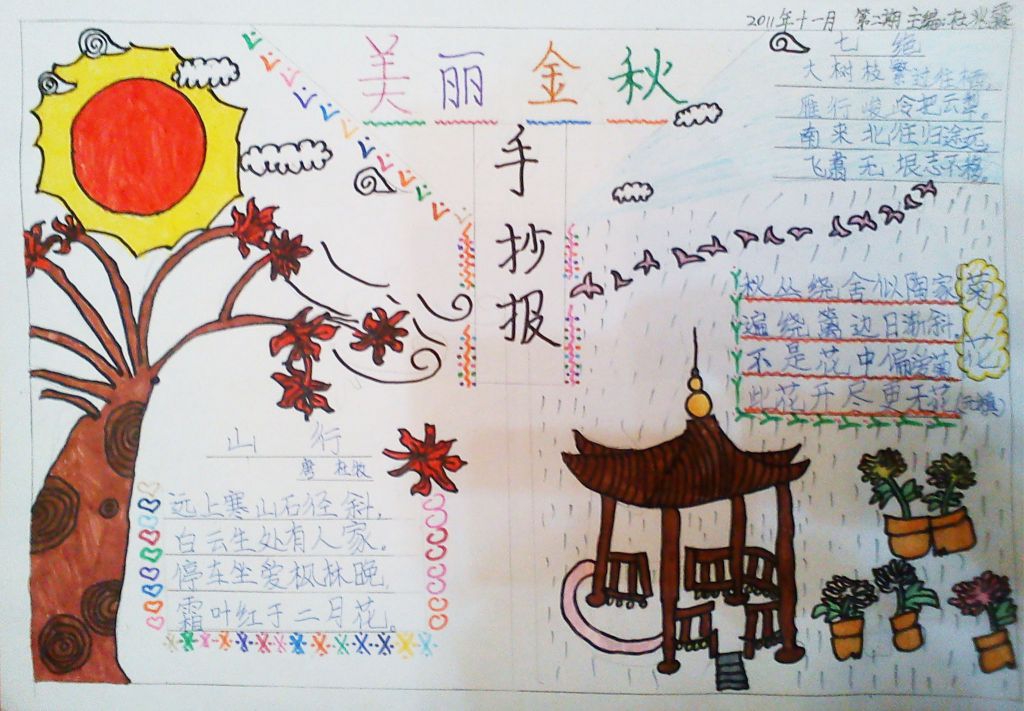 2011年十一月 第二期 主编:杜
美丽金秋
手抄报
七 绝
大树枝繁过往
雁行峻冷把云犁。
南来北往归途远,
飞翥无垠志不移。
菊花
秋丛绕舍似陶家
遍绕篱边日渐斜.
不是花中偏爱菊
此花开尽更无花(元稹)
山 行
唐 杜牧
远上寒山石径斜,
白云生处有人家。
停车坐爱枫林晚,
霜叶红于二月花。